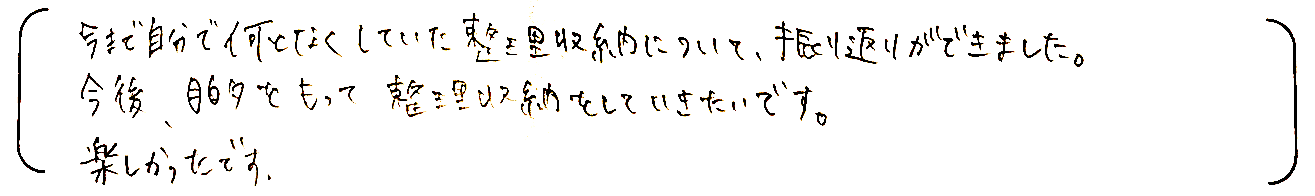 今まで自分で何となくしていた整理収納について、振り返りができました。
今後、目的をもって整理収納をしていきたいです。
楽しかったです。